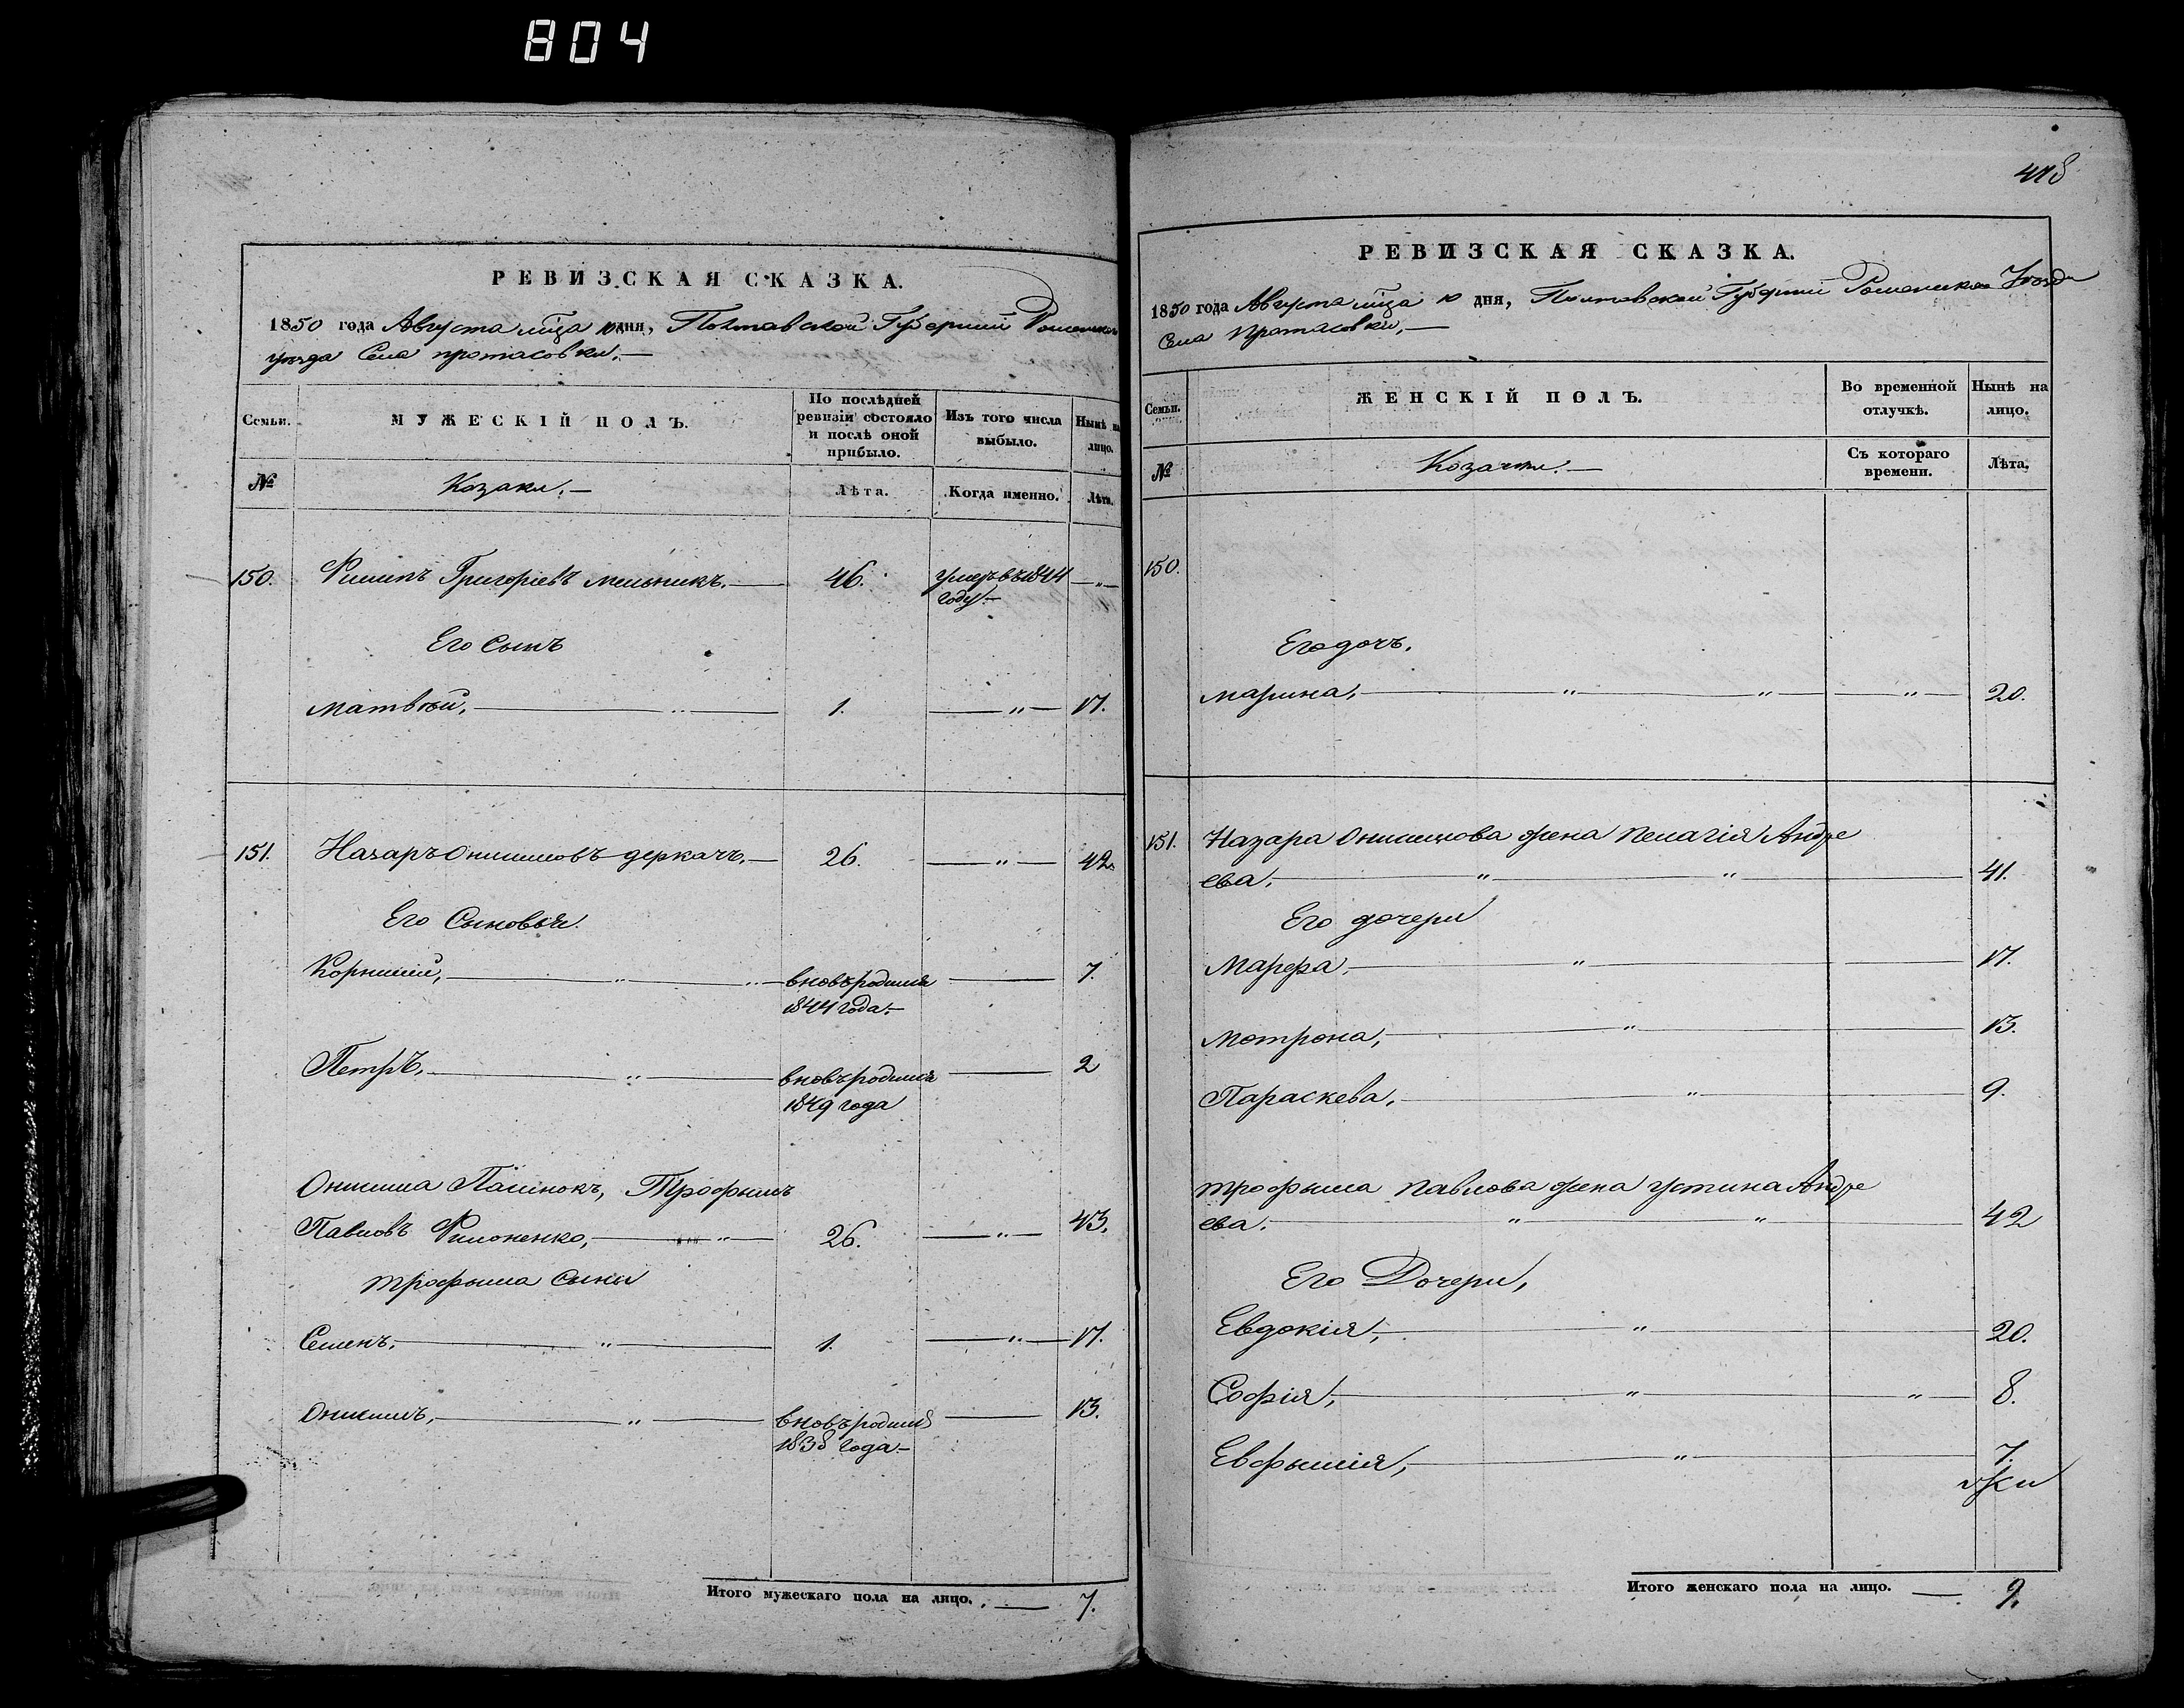 804
РЕВИЗСКАЯ СКАЗКА.
1850 года Августа мца 10 дня, Полтавской Губернии Роменского
уезда Села протасовки.
Семьи.
МУЖЕСКІЙ ПОЛЪ.
По послѣдней ревизіи состояло и послѣ оной прибыло.
Изъ того числа выбыло.
Нынѣ на лицо.
№
Козаки.
Лѣта.
Когда именно.
Лѣта.
150. Григоріевъ мельникъ. 46. умеръ въ 1844 —"—
году.
Его сынъ
матвѣй, 1. —"— 17.
151. Назаръ Онисимовъ деркачъ. 26. —"— 42.
Его Сыновья.
Корнилій, вновьродился 7.
1844 года.
Петръ, вновьродился 2
1849 года
Онисима Пасинокъ, Трофимъ
Павловъ Филоненко, 26. —"— 43.
трофыма сыны
Семенъ. 1. —"— 17.
Онисимъ, вновьродился 13.
1838 года.
Итого мужескаго пола на лицо. 7.
418
РЕВИЗСКАЯ СКАЗКА.
1850 года Августа мца 10 дня, Полтавской Губерніи Роменского Уезда
Села Протасовки,
Семьи.
ЖЕНСКІЙ ПОЛЪ.
Во временной отлучкѣ.
Нынѣ на лицо.
№
Козачки.
Съ котораго времени.
Лѣта.
150.
Его дочь.
марина, " " —"— 20.
151. Назара Онисимова жена пелагія Андре
ева. " " 41.
Его дочери
Марфа, " 17.
мотрона, " 13.
Параскева, " 9.
трофыма павлова жена устина Андре
ева. " " 42
Его Дочери,
Евдокія, " 20.
Софія, " " 8.
Евфымія, " 7.
Итого женскаго пола на лицо. 9.